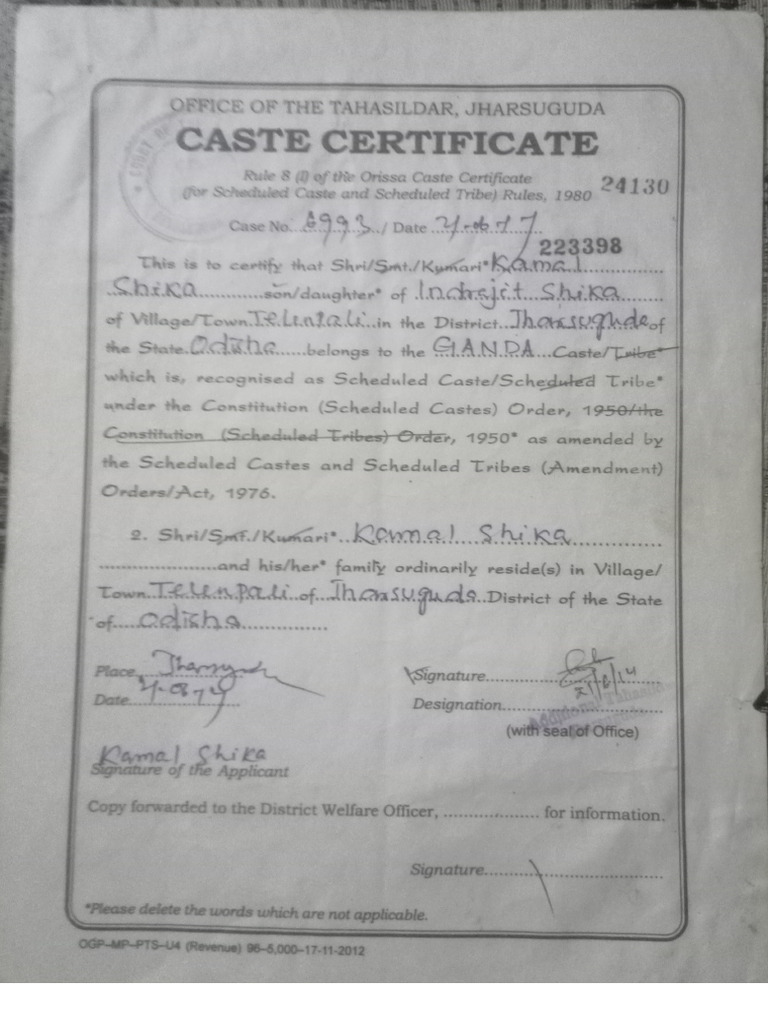 OFFICE OF THE TAHASILDAR, JHARSUGUDA
CASTE CERTIFICATE
Rule 8 (I) of the Orissa Caste Certificate
(for Scheduled Caste and Scheduled Tribe) Rules, 1980 24130
Case No. 6993 / Date
223398
This is to certify that Shri/Smt./Kumari* Kamal
Shika son/daughter* of Indrajit Shika
of Village/Town Telenpali in the District Jharsuguda of
the State Odisha belongs to the GANDA Caste/Tribe*
which is, recognised as Scheduled Caste/Scheduled Tribe*
under the Constitution (Scheduled Castes) Order, 1950/the
Constitution (Scheduled Tribes) Order, 1950* as amended by
the Scheduled Castes and Scheduled Tribes (Amendment)
Orders/Act, 1976.
2. Shri/Smt./Kumari* Kamal Shika
and his/her* family ordinarily reside(s) in Village/
Town Telenpali of Jharsuguda District of the State
of Odisha
Place
Date
Signature
Designation
Additional Tahasildar
(with seal of Office)
Kamal Shika
Signature of the Applicant
Copy forwarded to the District Welfare Officer, .................. for information.
Signature
*Please delete the words which are not applicable.
OGP–MP–PTS–U4 (Revenue) 96–5,000–17-11-2012